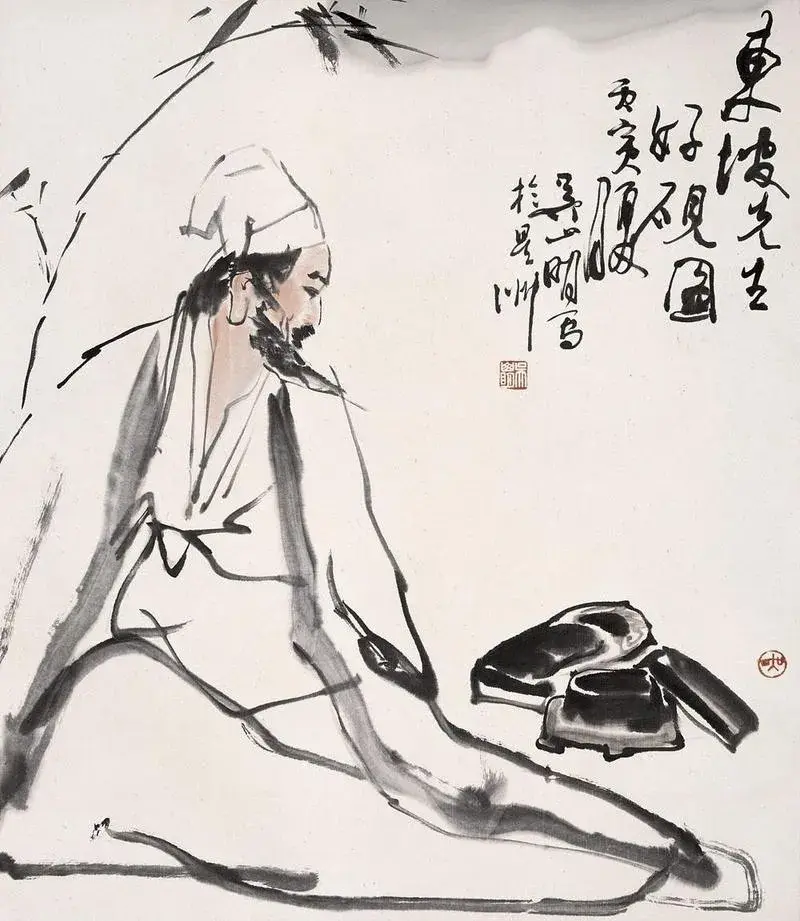 東坡先生
好硯圖
丙寅
吴山明写
於星洲